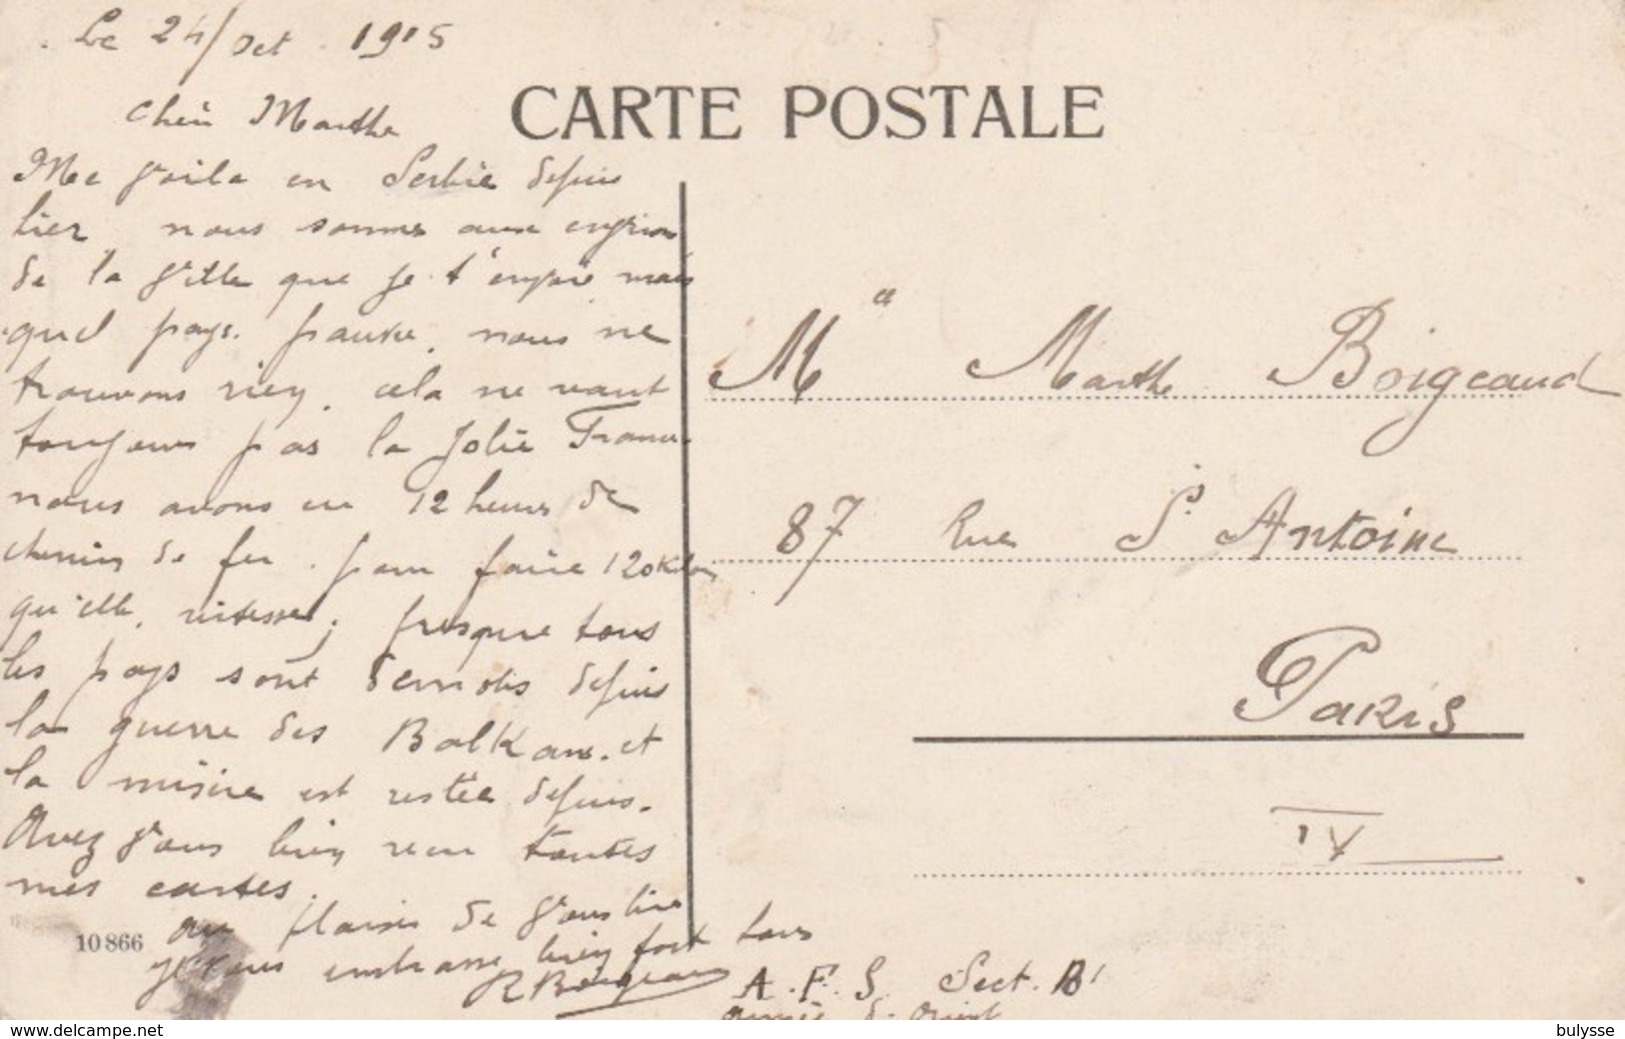 Le 24/Oct. 1915
CARTE POSTALE
Cher Marthe
Me voila en Serbie depuis
hier, nous sommes aux environ
de la ville que je t'envoie mais
quel pays. pauvre, nous ne
trouvons rien, cela ne vaut
toujours pas la Jolie France.
nous avons eu 12 heures de
chemin de fer. pour faire 120 Kilom
qu'elle, vitesse, presque tous
les pays sont demolis depuis
la guerre des Balkans. et
la misère est restée depuis.
Avez vous bien reçu toutes
mes cartes.
au plaisir de vous lire
je vous embrasse bien fort tous
R Boigeaud
A.F.S. Sect. B'
Armée d'Orient
10866
Mlle Marthe Boigeaud
87 Rue St Antoine
Paris
IV
delcampe.net
bulysse